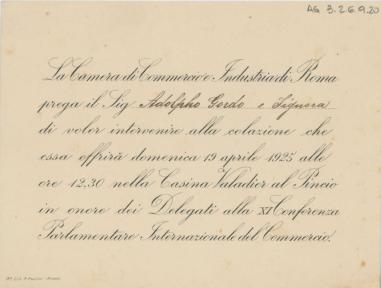 AG 3.2.6.9.20
La Camera di Commercio e Industria di Roma
prega il Sig. Adolpho Gordo e Signora
di voler intervenire alla colazione che
essa offrirà domenica 19 aprile 1925 alle
ore 12,30 nella Casina Valadier al Pincio
in onore dei Delegati alla XI Conferenza
Parlamentare Internazionale del Commercio.